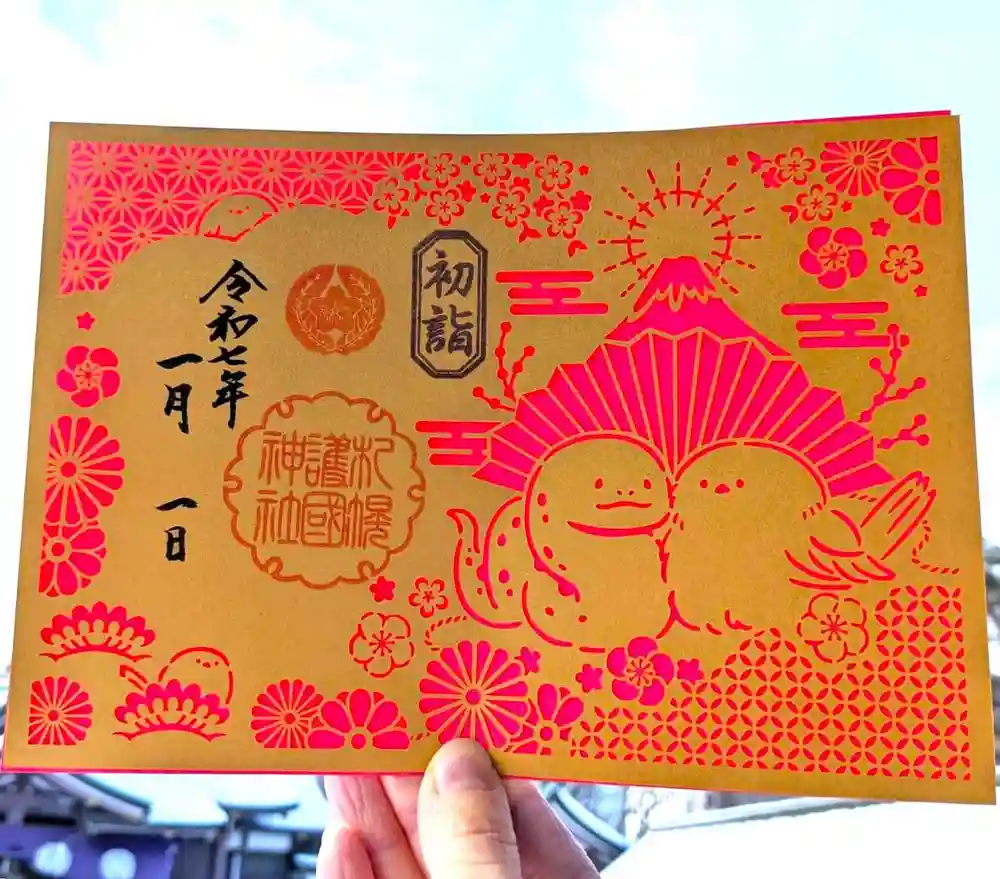 初詣
令和七年
一月
一日
札幌
護國
神社